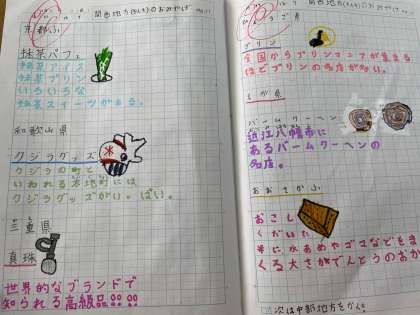 関西地方
京都ふ
抹茶パフェ
抹茶アイス
抹茶プリン
いろいろな
抹茶スイーツがある。
和歌山県
クジラグッズ
クジラの町と
いわれる太地町には
クジラグッズがいっぱい。
三重県
真珠
世界的なブランドで
知られる高級品!!!!!!
プリン
全国からプリンマニアが集まる
ほどプリンの名店が多い。
バームクーヘン
近江八幡市に
あるバームクーヘンの
名店。
おおさかふ
おこし
くだいた
米に水あめやゴマなどをま
ぜ
くる大さかでんとうのおか
次は中部地方をかく。